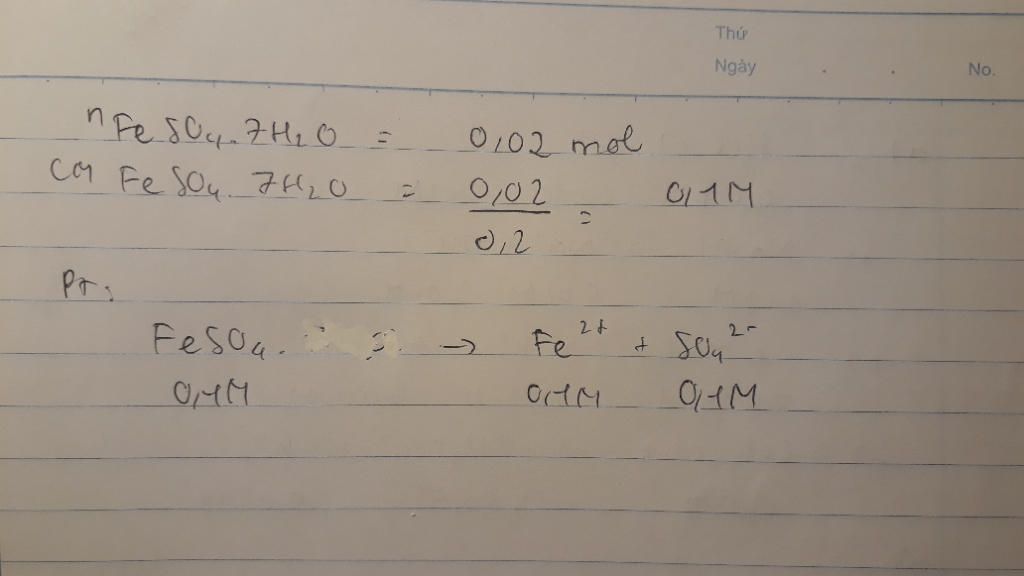 Thứ
Ngày . . No.
nFeSO4.7H2O = 0,02 mol
CM FeSO4.7H2O = 0,02/0,2 = 0,1M
Pt:
FeSO4. → Fe2+ + SO4 2-
0,1M 0,1M 0,1M